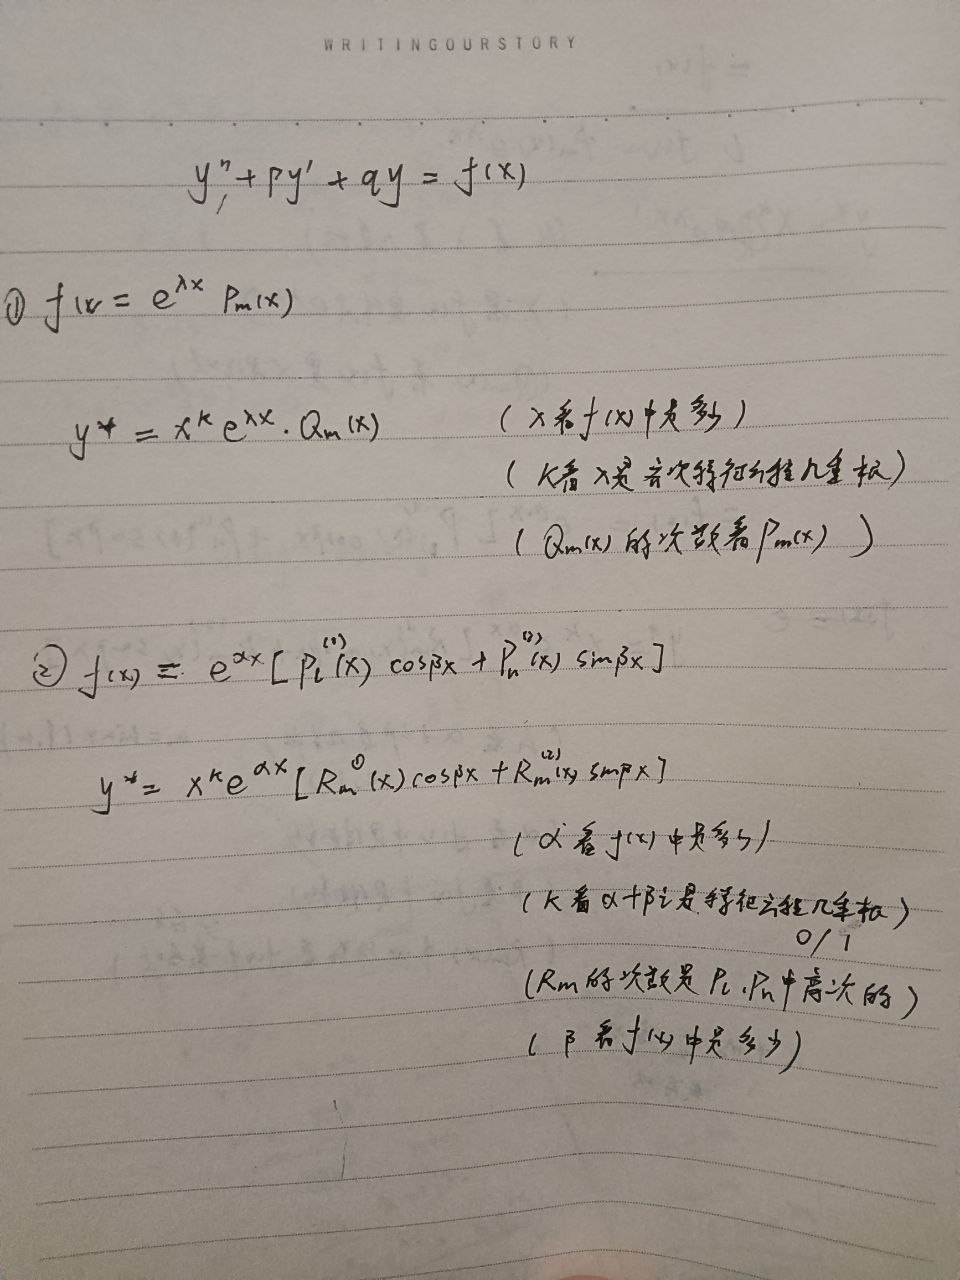 WRITINGOURSTORY
y'' + py' + qy = f(x)
① f(x) = e^{λx} P_m(x)
y* = x^k e^{λx} · Q_m(x) (λ看f(x)中是多少)
(k看λ是齐次特征方程几重根)
(Q_m(x)的次数看P_m(x))
② f(x) = e^{αx} [P_l^{(1)}(x) cosβx + P_n^{(2)}(x) sinβx]
y* = x^k e^{αx} [R_m^{(1)}(x) cosβx + R_m^{(2)}(x) sinβx]
(α看f(x)中是多少)
(k看α+βi是特征方程几重根)
0/1
(R_m的次数是P_l、P_n中高次的)
(β看f(x)中是多少)